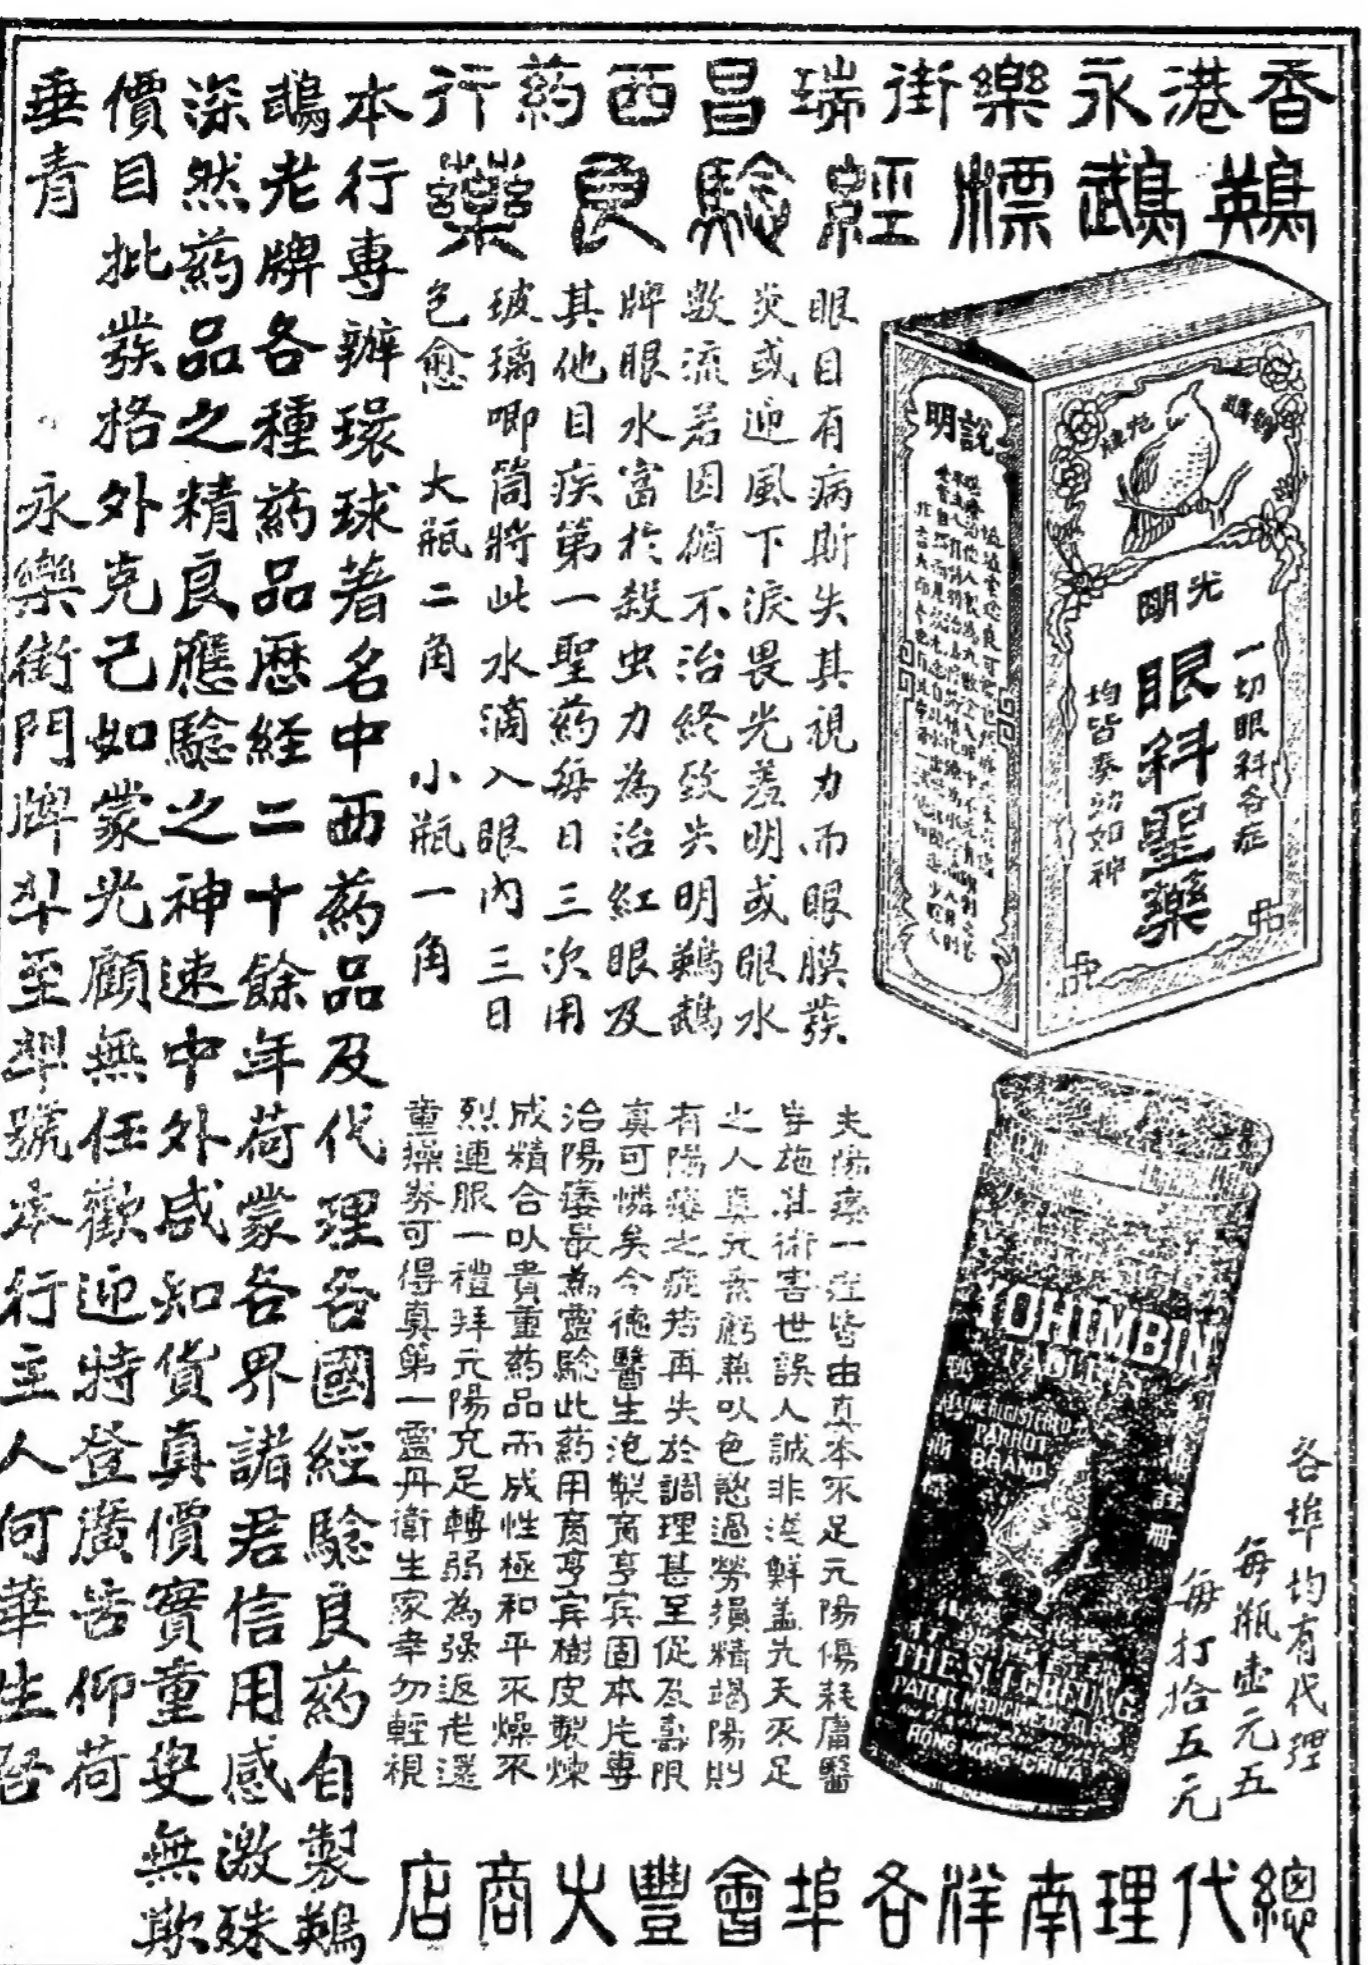 香港永樂街瑞昌西葯行
鵝鵡標經驗良藥
眼目有病斯失其視力而眼膜發
炎或迎風下淚畏光羞明或眼水
數流若因循不治終致失明鵝鵡
牌眼水富於殺虫力為治紅眼及
其他目疾第一聖葯每日三次用
玻璃唧筒將此水滴入眼內三日
包愈 大瓶二角 小瓶一角
說明
光明
一切眼科各症
眼科聖藥
均皆奏效如神
夫陽痿一症皆由真本不足元陽傷耗庸醫
害世誤人誠非淺鮮盖先天不足
之人真元虧兼以色慾過勞損精竭陽則
有陽痿之症若再失於調理甚至促及壽限
真可憐矣今德醫生泡製育亨宾固本片專
治陽痿最為靈驗此葯用育亨宾樹皮製煉
成精合以貴重葯品而成性極和平不燥不
烈連服一禮拜元陽充足轉弱為强返老還
童操券可得真第一靈丹衛生家幸勿輕視
YOHIMBIN
TABLETS
THE REGISTERED
PARROT
BRAND
註冊
THE SUI CHEUNG
PATENT MEDICINE DEALERS
HONG KONG CHINA
各埠均有代理
每瓶壹元五
每打拾五元
本行專辦環球著名中西葯品及代理各國經驗良葯自製鵝
鵡老牌各種葯品歷経二十餘年荷蒙各界諸君信用感激殊
深然葯品之精良應驗之神速中外咸知貨真價實童叟無欺
價目批發格外克己如蒙光顧無任歡迎特登廣告仰荷
垂青 永樂街門牌
號本行主人何華生啓
總代理南洋各埠會豐大商店